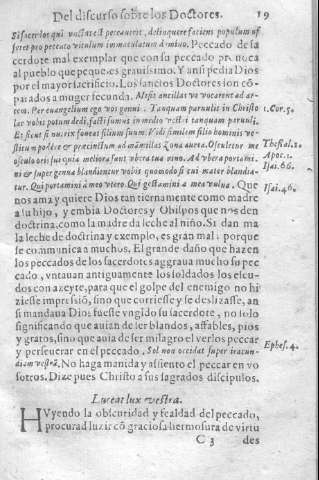 Del discurso sobre los Doctores. 19
Si sacerdos qui vnctus est peccauerit, delinquere faciens populum of
feret pro peccato vitulum immaculatum domino. Peccado de sa
cerdote mal exemplar que con su pecado prouoca
al pueblo que peque, es grauissimo. Y ansi pedia Dios
por el mayor sacrificio. Los sanctos Doctores son cõ
parados a muger fecunda.
Per euangelium ego vos genui. Tanquam paruulis in Christo 1. Cor. 3.
lac vobis potum dedi, facti sumus in medio vestri tanquam paruuli.
Et sicut si nutrix foueat filios suos. Vidi similem filio hominis ve- Thessal. 2.
stitum podere & præcinctum ad mamillas Zona aurea. Osculetur me Apoc. 1.
osculo oris sui quia meliora sunt vbera tua vino. Ad vbera portami-
ni & super genua blandientur vobis quomodo si cui mater blandia- Isai. 66.
tur. Qui portamini à meo vtero. Qui gestamini a mea vulua. Que Isai. 46.
nos ama y quiere Dios tan tiernamente como madre
a su hijo, y embia Doctores y Obispos que nos den
doctrina, como la madre da leche al niño. Si dan ma
la leche de doctrina y exemplo, es gran mal: porque
se communica a muchos. El grande daño que hazen
los peccados de los sacerdotes aggraua mucho su pec
cado, vntauan antiguamente los soldados los escu-
dos con azeyte, para que el golpe del enemigo no hi
ziesse impressiõ, sino que corriesse y se deslizasse, an
si mandaua Dios fuesse vngido su sacerdote, no solo
significando que auian de ser blandos, affables, pios
y gratos, sino que auia de ser milagro el verlos peccar
y perseuerar en el peccado. Sol non occidat super iracun- Ephes. 4.
diam vestrã. No haga manida y assiento el peccar en vo
sotros. Dize pues Christo a sus sagrados discipulos.
Luceat lux vestra.
HVyendo la obscuridad y fealdad del peccado,
procurad luzir cõ graciosa hermosura de virtu
C 3 des